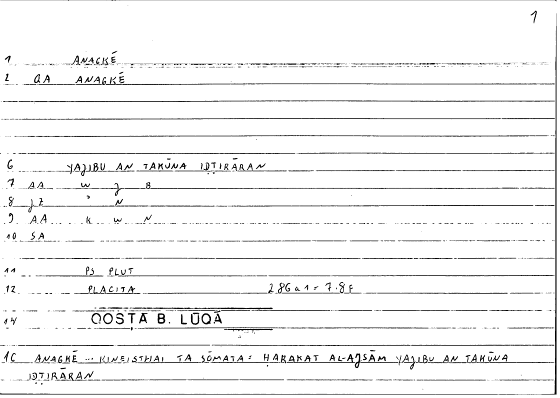 1
1 ANAGKĒ
2 QA ANAGKĒ
6 YAJIBU AN TAKŪNA IḌṬIRĀRAN
7 AA w j 8
8 JZ " N
9 AA K W N
10 SA
11 PS PLUT
12 PLACITA 286 a 1 = 7.8 F
14 QOSṬĀ B. LŪQĀ
16 ANAGKĒ ... KINEISTHAI TA SŌMATA: ḤARAKAT AL-AJSĀM YAJIBU AN TAKŪNA
IḌṬIRĀRAN